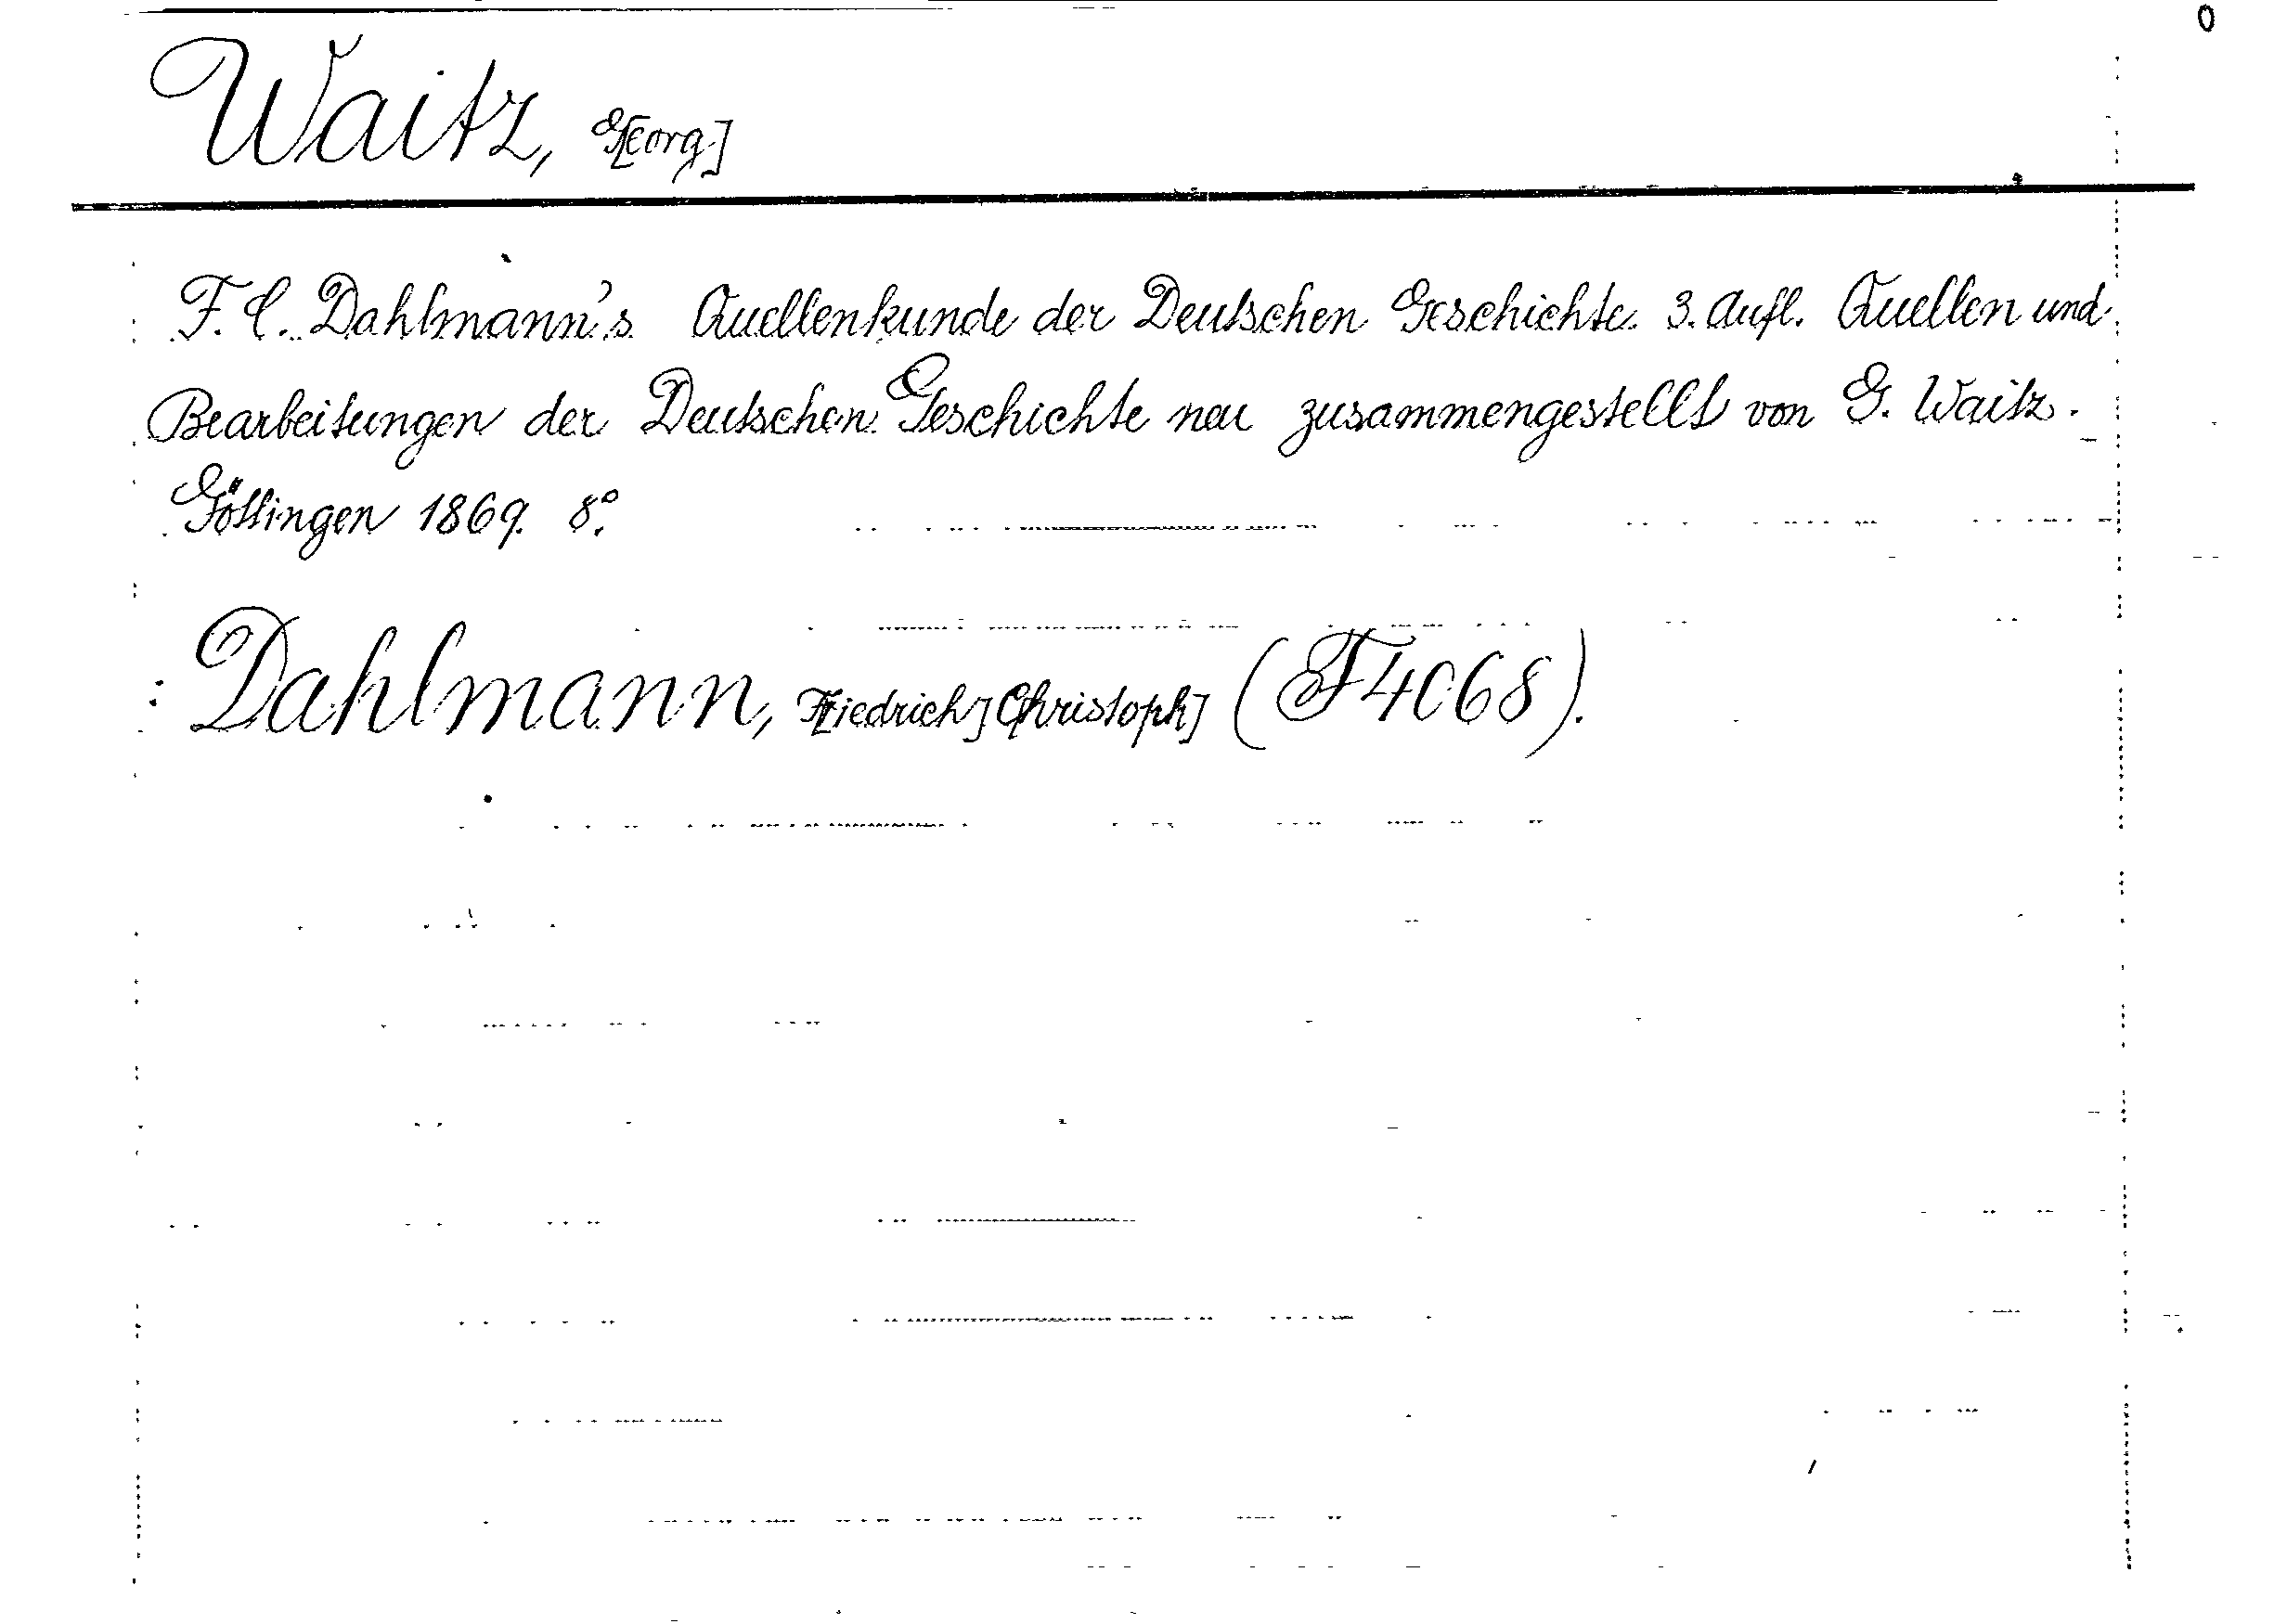 Waitz, G[eorg]
F. C. Dahlmann's Quellenkunde der Deutschen Geschichte. 3. Aufl. Quellen und
Bearbeitungen der Deutschen Geschichte neu zusammengestellt von G. Waitz.
Göttingen 1869. 8°.
Dahlmann, F[riedrich] C[hristoph] (F 4068).